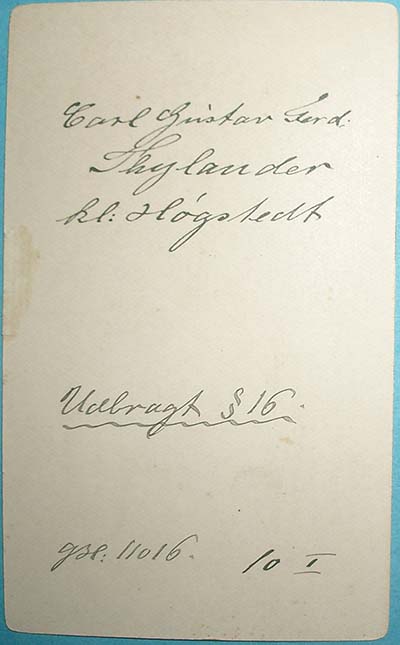 Carl Gustav Ferd.
Thylander
kl: Høgstedt
Udbragt § 16.
gbl: 11016. 10 I